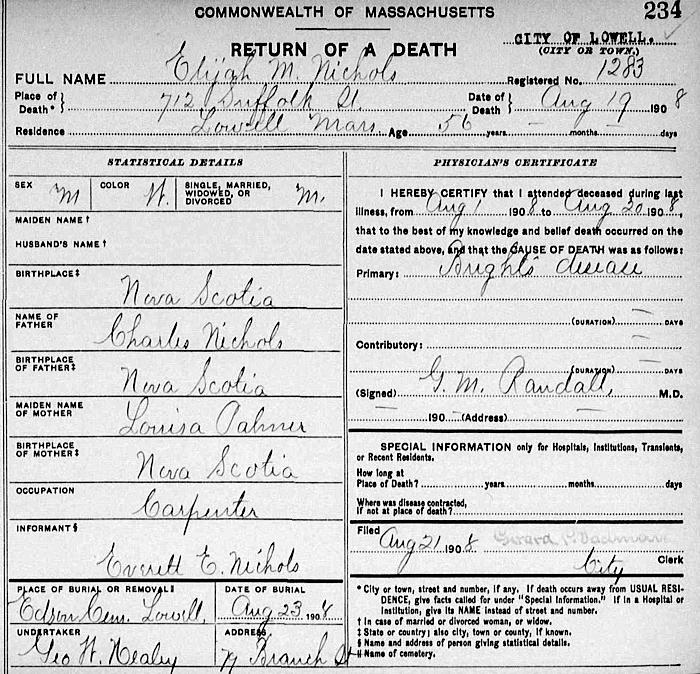 COMMONWEALTH OF MASSACHUSETTS 234
CITY OF LOWELL.
RETURN OF A DEATH (CITY OR TOWN.)
FULL NAME Elijah M. Nichols Registered No. 1283
Place of Death* } 712 Suffolk St. Date of Death } Aug 19 1908
Residence Lowell Mass Age 56 years — months — days
STATISTICAL DETAILS
SEX M COLOR W. SINGLE, MARRIED, WIDOWED, OR DIVORCED M.
MAIDEN NAME †
HUSBAND'S NAME †
BIRTHPLACE ‡
Nova Scotia
NAME OF FATHER
Charles Nichols
BIRTHPLACE OF FATHER ‡
Nova Scotia
MAIDEN NAME OF MOTHER
Louisa Palmer
BIRTHPLACE OF MOTHER ‡
Nova Scotia
OCCUPATION
Carpenter
INFORMANT §
Everett E. Nichols
PLACE OF BURIAL OR REMOVAL ‖ DATE OF BURIAL
Edson Cem. Lowell, Aug 23 1908
UNDERTAKER ADDRESS
Geo W. Healey 79 Branch St
PHYSICIAN'S CERTIFICATE
I HEREBY CERTIFY that I attended deceased during last
illness, from Aug 1 1908 to Aug 20 1908,
that to the best of my knowledge and belief death occurred on the
date stated above, and that the CAUSE OF DEATH was as follows:
Primary: Bright's disease
(DURATION) — DAYS
Contributory: —
(DURATION) — DAYS
(Signed) G. M. Randall, M.D.
— 190 — (Address) —
SPECIAL INFORMATION only for Hospitals, Institutions, Transients,
or Recent Residents.
How long at
Place of Death? years months days
Where was disease contracted,
if not at place of death?
Filed Aug 21 1908 Girard P. Dadman
City Clerk
* City or town, street and number, if any. If death occurs away from USUAL RESI-
DENCE, give facts called for under "Special Information." If in a Hospital or
Institution, give its NAME instead of street and number.
† In case of married or divorced woman, or widow.
‡ State or country; also city, town or county, if known.
§ Name and address of person giving statistical details.
‖ Name of cemetery.